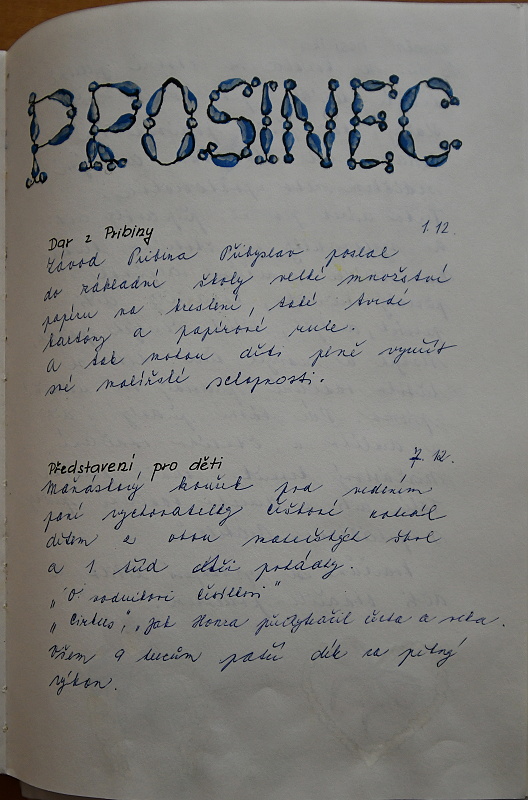 PROSINEC
Dar z Pribiny 1.12.
Závod Pribina Přibyslav poslal
do základní školy velké množství
papíru na kreslení, také tvrdé
kartóny a papírové role.
A tak mohou děti plně využít
své malířské schopnosti.
Představení pro děti 7.12.
Maňáskový kroužek pod vedením
paní vychovatelky sehrál
dětem z obou mateřských škol
a 1. tříd pohádky.
„O vodníkovi
„Cirkus", „Jak Honza čerta a
Všem 9 hercům patří dík za pěkný
výkon.